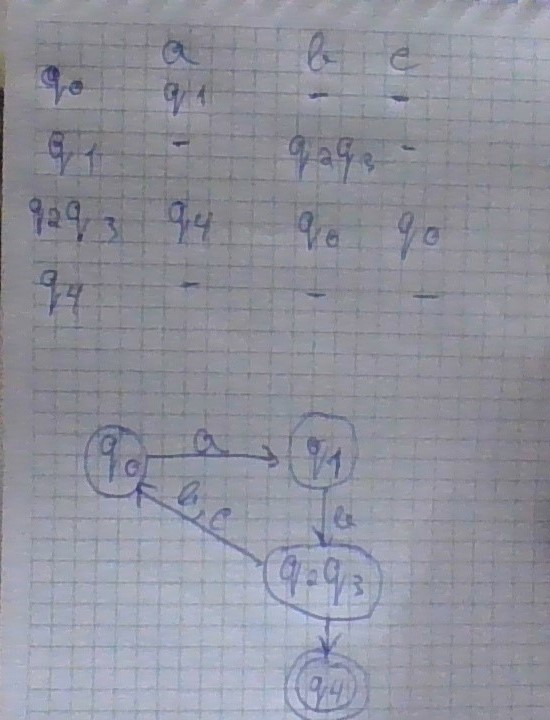 a b c
q0 q1 - -
q1 - q2q3 -
q2q3 q4 q0 q0
q4 - - -
q0 a q1
b,c b
q2q3
q4